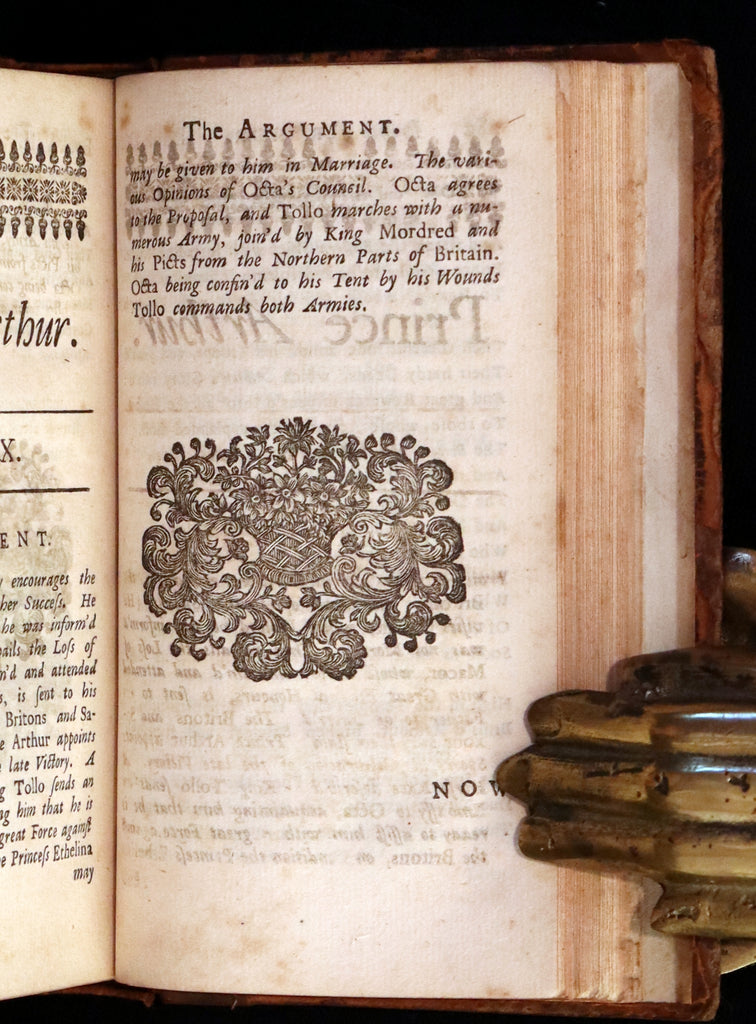 thur.
X.
ENT.
encourages the
her Succeſs. He
he was inform'd
ails the Loſs of
n'd and attended
s, is ſent to his
Britons and Sa-
e Arthur appoints
late Victory. A
g Tollo ſends an
ng him that he is
great Force againſt
e Princeſs Ethelina
may
The ARGUMENT.
may be given to him in Marriage. The vari-
ous Opinions of Octa's Council. Octa agrees
to the Propoſal, and Tollo marches with a nu-
merous Army, join'd by King Mordred and
his Picts from the Northern Parts of Britain.
Octa being confin'd to his Tent by his Wounds
Tollo commands both Armies.
NOW